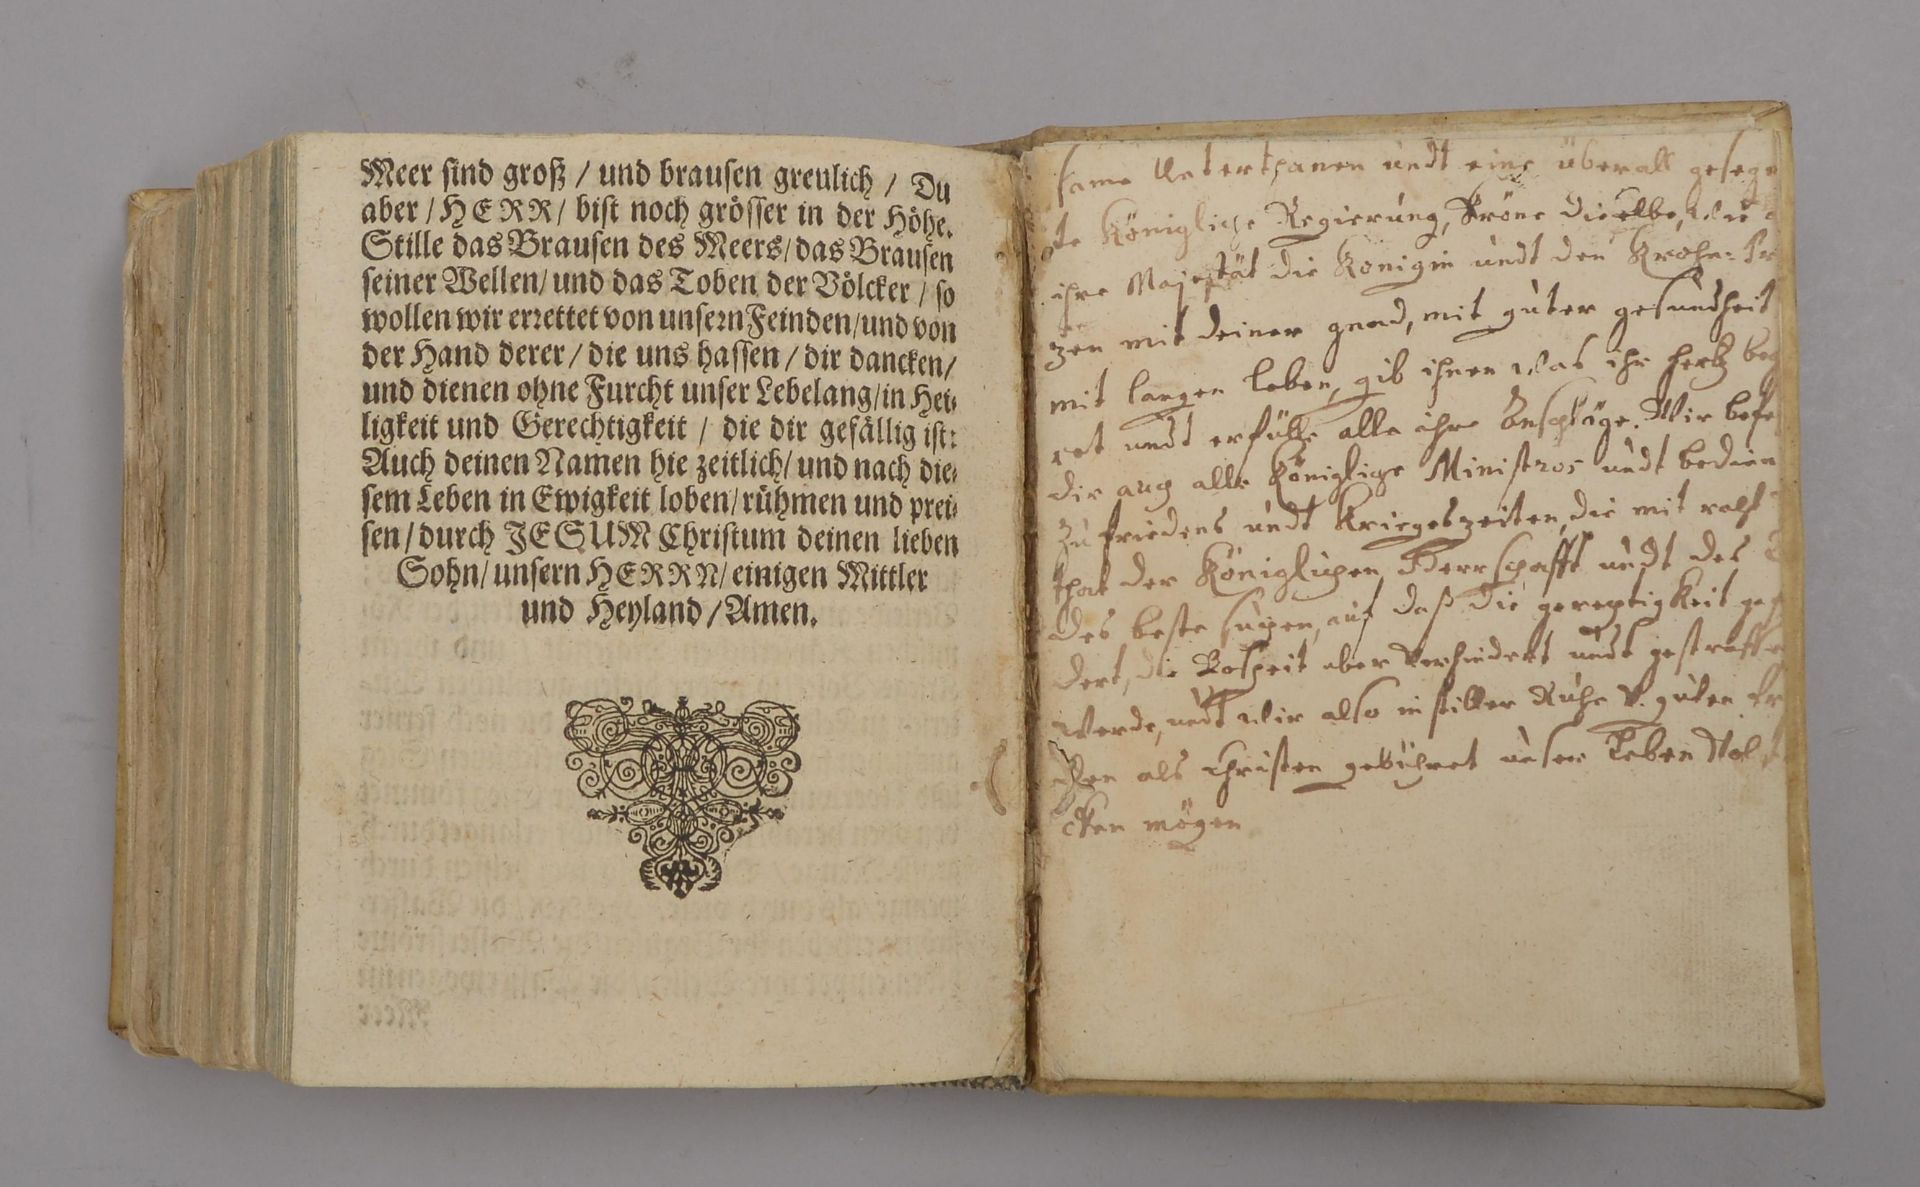 Meer sind groß / und brausen greulich / Du
aber / HERR / bist noch grösser in der Höhe.
Stille das Brausen des Meers / das Brausen
seiner Wellen / und das Toben der Völcker / so
wollen wir errettet von unsern Feinden / und von
der Hand derer / die uns hassen / dir dancken /
und dienen ohne Furcht unser Lebelang / in Hei-
ligkeit und Gerechtigkeit / die dir gefällig ist:
Auch deinen Namen hie zeitlich / und nach die-
sem Leben in Ewigkeit loben / rühmen und prei-
sen / durch JESUM Christum deinen lieben
Sohn / unsern HERRN / einigen Mittler
und Heyland / Amen.
same Unterthanen undt eine überall gesegn
te Königliche Regierung, Kröne dieselbe, wie
ihre Majestät die Königin undt den Krohn-Pr
zen mit deiner gnad, mit guter gesundheit
mit langen leben, gib ihnen was ihr hertz beg
ret undt erfülle alle ihre Anschläge. Wir befe
dir auch alle Königliche Ministros undt bedien
zu friedens undt Kriegeszeiten, die mit
that der Königlichen Herrschafft undt des
des beste suchen, auf daß die gerechtigkeit
dert, die Boßheit aber verhindert undt gestraffe
werde, undt wir also in stiller Ruhe v. guten fr
den als Christen gebühret unser Leben Vol
cken mögen